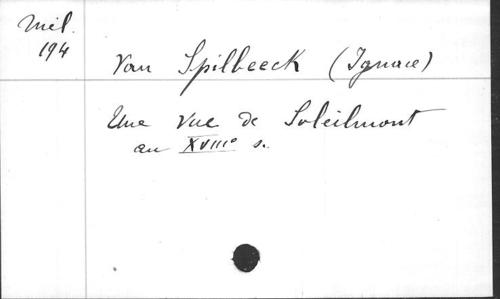 Mél.
194
Van Spilbeeck (Ignace)
Une vue de Soleilmont
au XVIIIe s.